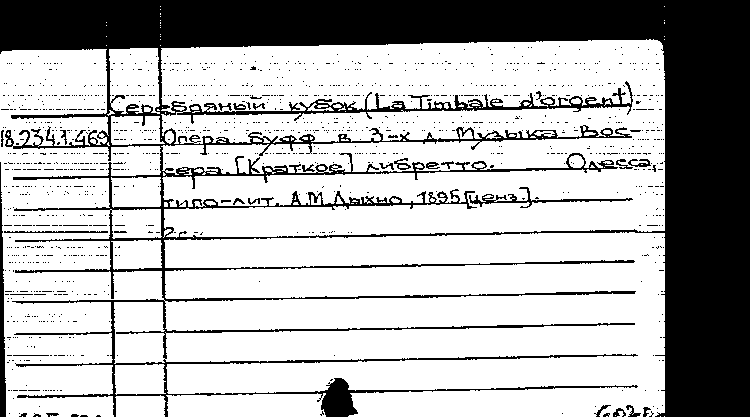 Серебряный кубок (La Timbale d'orgent).
18.234.1.469 Опера буфф в 3-х д. Музыка Вос-
сера. [Краткое] либретто. Одесса,
типо-лит. А.М. Дыхно, 1895 [ценз.].
2с.